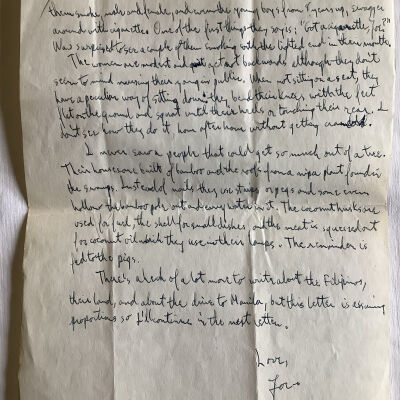 them smoke, male and female, and even the young boys from 8 years up, swagger
around with cigarettes. One of the first things they say is; "Got a cigarette, Joe?"
Was surprised to see a couple of them smoking with the lighted end in their mouths.
The women are modest and get backwards although they don't
seem to mind nursing their young in public. When not sitting on a seat, they
have a peculiar way of sitting down; they bend their knees with the feet
flat on the ground and squat until their heels or touching their rear. I
don't see how they do it hour after hour without getting
I never saw a people that could get so much out of a tree.
Their homes are built of bamboo and the roofs from a nipa plant found in
the swamps. Instead of nails they use strips or pegs and some even
hollow the bamboo pole out and carry water in it. The coconut husks are
used for fuel, the shell for small dishes and the meat is squeezed out
for coconut oil which they use in their lamps. The remainder is
fed to the pigs.
There's a heck of a lot more to write about the Filipinos,
their land, and about the drive to Manila, but this letter is assuming
proportions so I'll continue in the next letter.
Love,